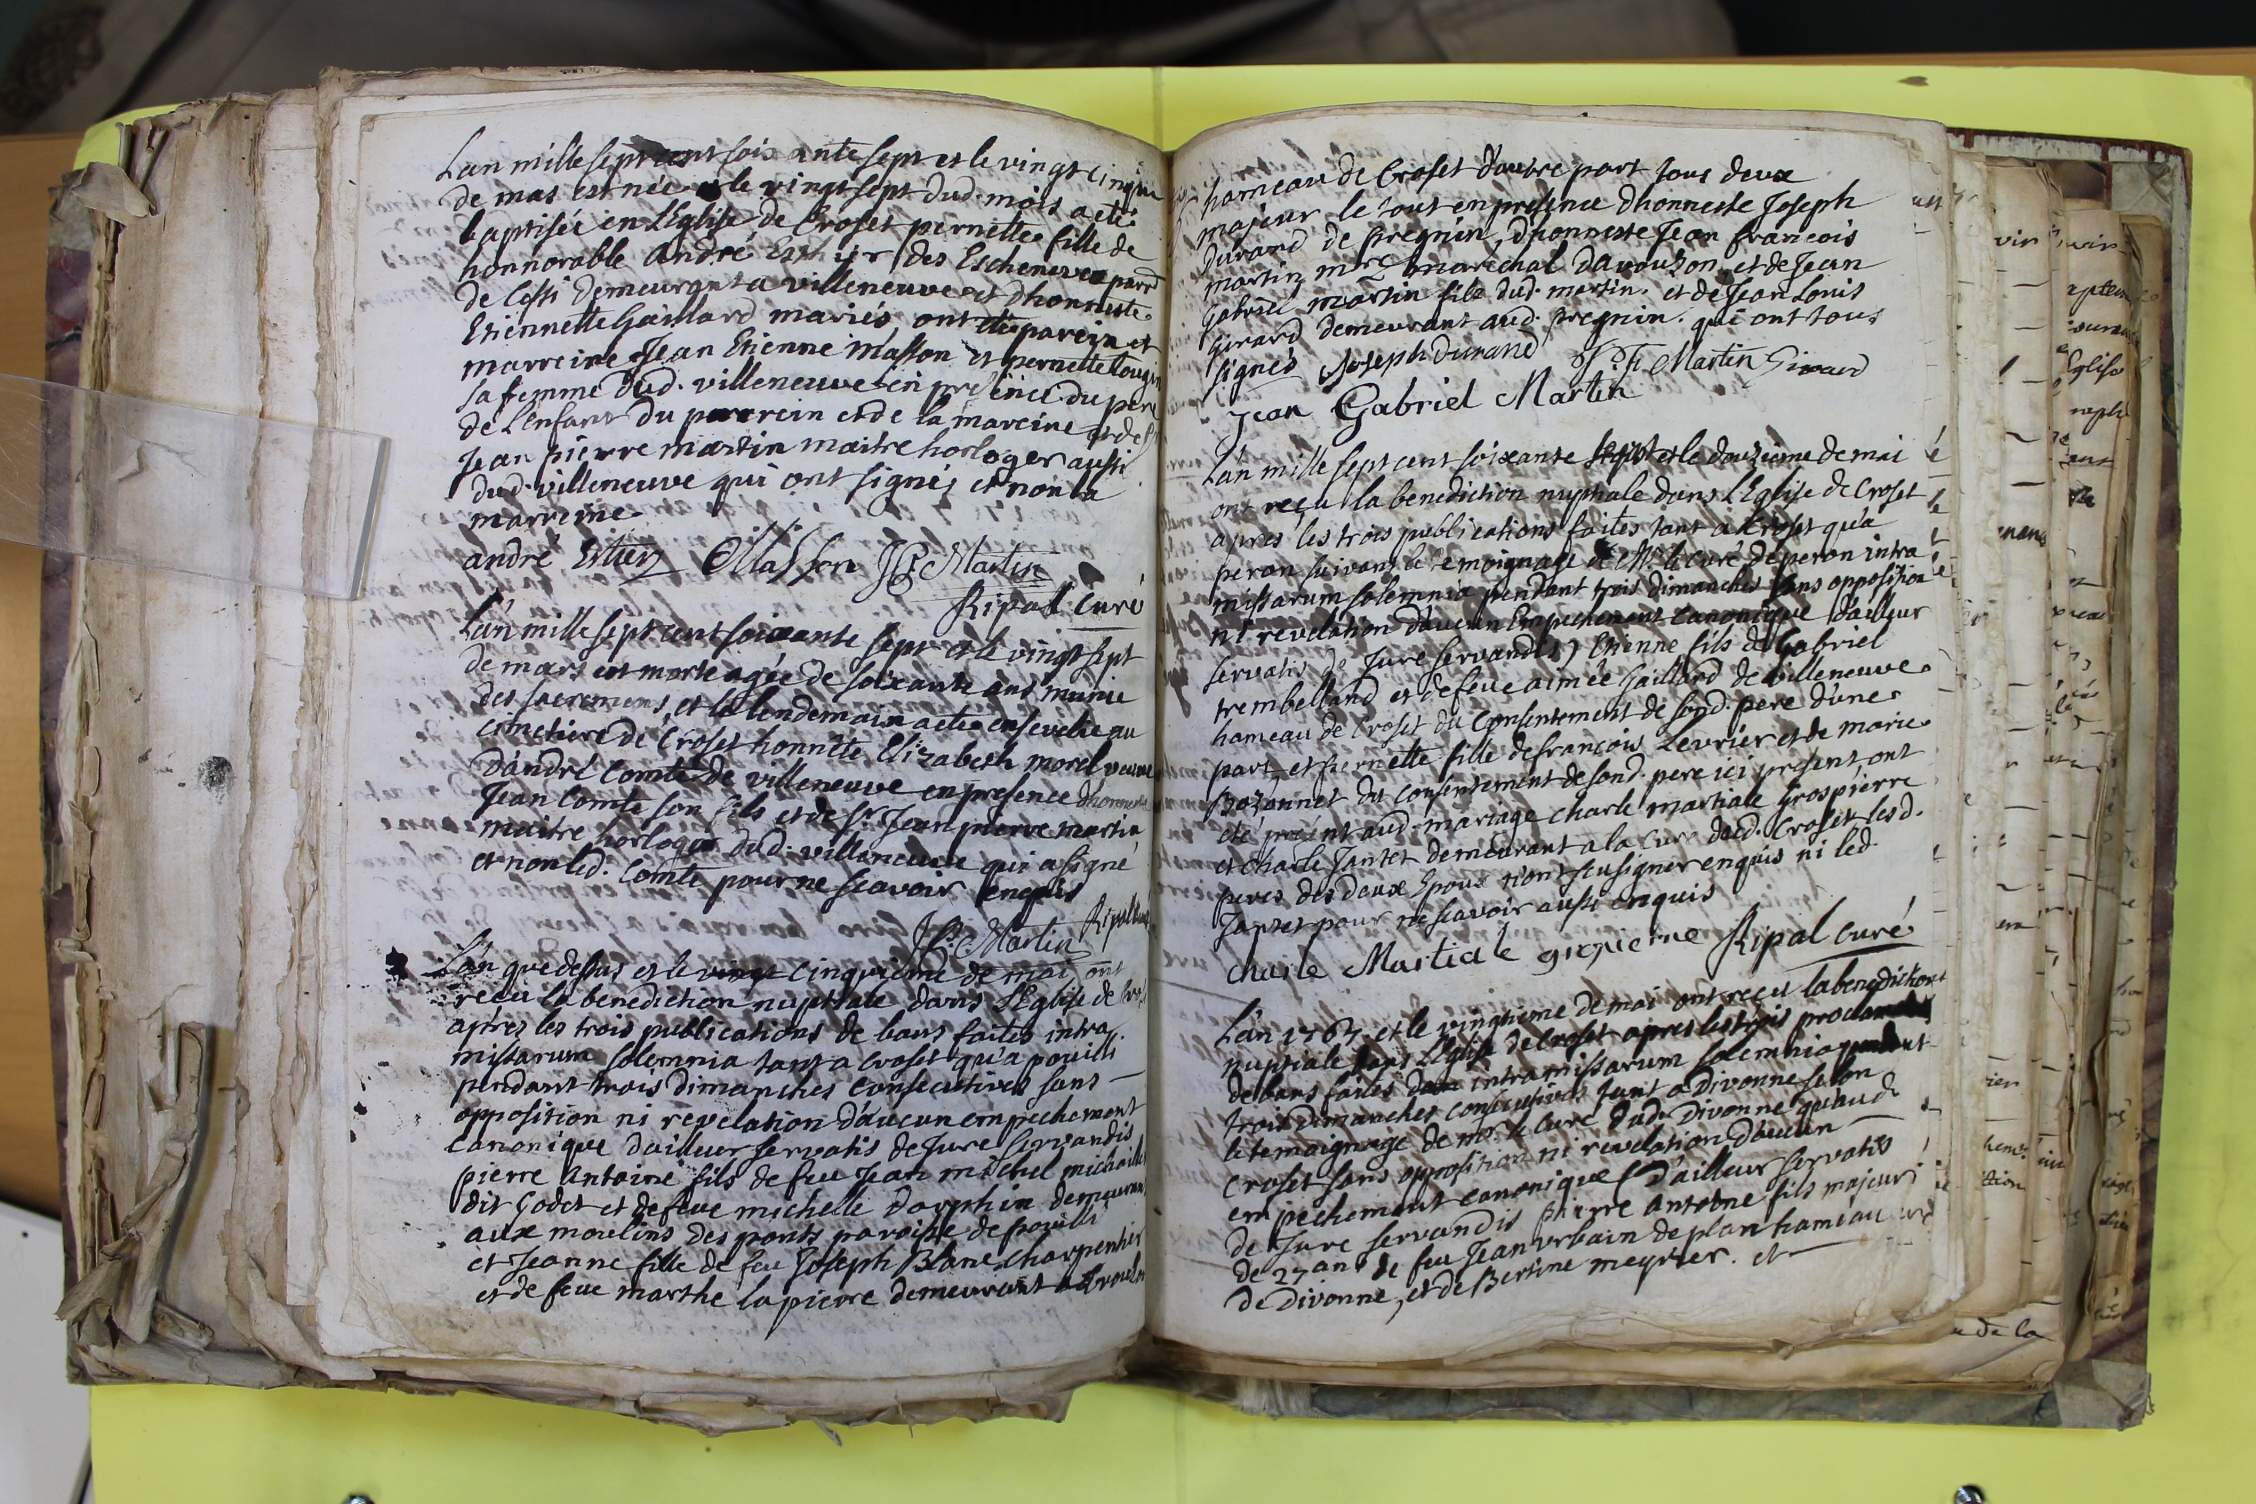 Lan mille sept cent soixante sept et le vingt cinquie
de mas est née et le vingt sept dud. mois a eté
baptisée en l'Eglise de Croset pernette fille de
honnorable André Esthyer des Eschenevex parr
de Cessi demeurant a villeneuve et dhonneste
Etiennette Gaillard mariés ont été parein et
marreine Jean Etienne Masson et pernette
sa femme dud. villeneuve en presence du pere
de Lenfant du parrein et de la mareine et de Sr
Jean pierre martin maitre horloger aussi
dud. villeneuve qui ont signés et non la
marreine
andré Estier Masson JP Martin
Ripal Curé
L'an mille sept cent soixante sept et le vingt sept
de mars est morte agée de soixante ans munie
des sacremens, et le lendemain a eté ensevelie au
cimetiere de Croset honnête Elizabeth morel veuve
dandré Comte de villeneuve en presence dhonneste
Jean Comte son fils et de Sr. Jean pierre martin
maitre horloger dud. villeneuve qui a signé
et non led. Comte pour ne scavoir enquis
JP. Martin Ripal Curé
L'an que dessus et le vingt cinquieme de mai ont
recu la benediction nuptiale dans L'Eglise de Croset
aprez les trois publications de bans faites intra
missarum solemnia tant a Croset qu'a pouilli
pendant trois dimanches consecutives sans
opposition ni revelation d'aucun empechement
canonique d'ailleur servatis de Jure servandis
pierre Antoine fils de feu Jean michel michaille
dit Godet et de feue michelle Dauphin demeurant
aux moulins des ponts paroisse de pouilli
et Jeanne fille de feu Joseph Blanc charpentier
et de feue marthe lapierre demeurant a Avouzon
hameau de Croset d'autre part tous deux
majeur le tout en presence dhonneste Joseph
Durand de pregnin, dhonneste Jean francois
martin mre marechal Davouzon et de Jean
Gabriel martin fils dud. martin. et de Jean Louis
girard demeurant aud. pregnin. qui ont tous
signés Joseph Durand J. F. Martin Girard
Jean Gabriel Martin
L'an mille sept cent soixante sept et le douzieme de mai
ont reçu la benediction nuptiale dans l'Eglise de Croset
après les trois publications faites tant a Croset qu'a
peron suivant le temoignage de Mr. le Curé de peron intra
missarum solemnia pendant trois dimanches sans opposition
ni revelation d'aucun Empechement Canonique d'ailleur
servatis de Jure servandis) Etienne fils de Gabriel
trembelland et de feue aimée Gaillard de villeneuve
hameau de Croset du Consentement de sond. pere d'une
part et pernette fille de françois Levrier et de marie
Bozonnet du consentement de sond. pere ici present, ont
eté present aud. mariage charle martiale Grospierre
et charle Jantet demeurant a la Cure dud. Croset les d.
peres des deux Epoux n'ont scu signer enquis ni led.
Jantet pour ne scavoir aussi enquis
charle Martiale gropierre Ripal Curé
L'an 1767 et le vingtieme de mai ont reçu la benediction
nuptiale dans L'Eglise de Croset apres les trois
de bans faites intra missarum solemnia pendant
trois dimanches consecutives tant a Divonne selon
le temoignage de mr. le Curé dud. Divonne quaud.
Croset sans opposition ni revelation d'aucun
empechement canonique (D'ailleur servatis
de Jure servandis pierre Antoine fils majeur
de 27 ans de feu Jean urbain de plan hameau
de Divonne, et de Bertine meynier. et